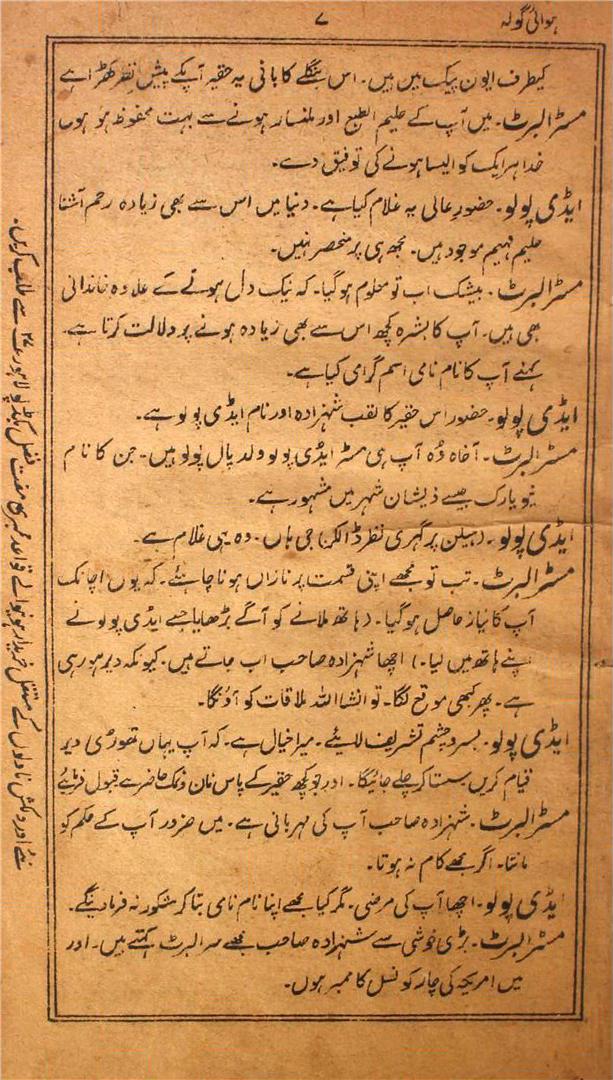 ہوائی گولہ
۷
کیطرف ایون پیک میں ہیں۔ اس بنگلے کا بانی یہ حقیر آپکے پیش نظر کھڑا ہے
مسٹر البرٹ۔ میں آپ کے حلیم الطبع اور ملنسار ہونے سے بہت محفوظ ہؤ ہوں
خدا ہر ایک کو ایسا ہونے کی توفیق دے۔
ایڈی پولو۔ حضور عالی یہ غلام کیا ہے۔ دنیا میں اس سے بھی زیادہ رحم آشنا
حلیم فہیم موجود ہیں۔ مجھ ہی پر منحصر نہیں۔
مسٹر البرٹ۔ بیشک اب تو معلوم ہوگیا۔ کہ نیک دل ہونے کے علاوہ خاندانی
بھی ہیں۔ آپ کا بشرہ کچھ اس سے بھی زیادہ ہونے پر دلالت کرتا ہے۔
کہئے آپ کا نام نامی اسم گرامی کیا ہے۔
ایڈی پولو۔ حضور اس حقیر کا لقب شہزادہ اور نام ایڈی پولو ہے۔
مسٹر البرٹ۔ آخاہ وُہ آپ ہی مسٹر ایڈی پولو ولد پال پولو ہیں۔ جن کا نام
نیویارک جیسے ذیشان شہر میں مشہور ہے۔
ایڈی پولو۔ (ہیلن پر گہری نظر ڈالکر) جی ہاں۔ وہ یہی غلام ہے۔
مسٹر البرٹ۔ تب تو مجھے اپنی قسمت پر نازاں ہونا چاہئے۔ کہ یوں اچانک
آپ کا نیاز حاصل ہوگیا۔ (ہاتھ ملانے کو آگے بڑھایا جسے ایڈی پولو نے
اپنے ہاتھ میں لیا۔) اچھا شہزادہ صاحب اب جاتے ہیں۔ کیونکہ دیر ہو رہی
ہے۔ پھر کبھی موقع لگا۔ تو انشاء اللہ ملاقات کو آؤنگا۔
ایڈی پولو۔ بسر و چشم تشریف لایئے۔ میرا خیال ہے۔ کہ آپ یہاں تھوڑی دیر
قیام کریں سستا کر چلے جائیگا۔ اور جو کچھ حقیر کے پاس نان و نمک حاضر ہے قبول فرمائیے
مسٹر البرٹ۔ شہزادہ صاحب آپ کی مہربانی ہے۔ میں ضرور آپ کے حکم کو
مانتا۔ اگر مجھے کام نہ ہوتا۔
ایڈی پولو۔ اچھا آپ کی مرضی۔ مگر کیا مجھے اپنا نام نامی بتا کر مشکور نہ فرماوینگے۔
مسٹر البرٹ۔ بڑی خوشی سے شہزادہ صاحب مجھے سر البرٹ کہتے ہیں۔ اور
میں امریکہ کی چار کونسل کا ممبر ہوں۔
نئے اور دلکش ناولوں کے مستقل خریدار بنوالے قواعد ممبری مفت فضل بکڈپو لاہور سے طلب کریں۔